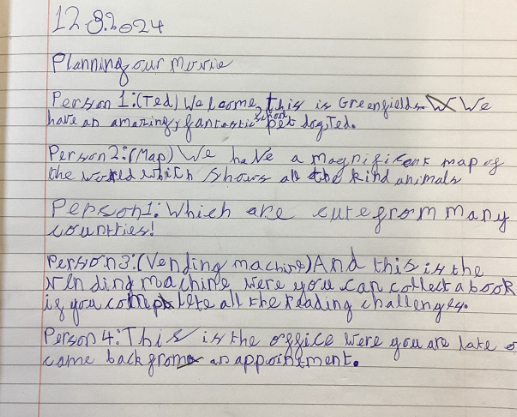 12.9.2024
Planning our movie
Person 1:(Ted) Welcome, this is Greenfields. We
have an amazing, fantastic school pet dog, Ted.
Person 2:(Map) We have a magnificant map of
the world which shows all the kind animals
Person1: Which are cute from many
counties!
Person3:(Vending machine) And this is the
vending machine were you can collect a book
if you complete all the reading challenges.
Person 4: This is the office were you are late o
came back from an appointment.